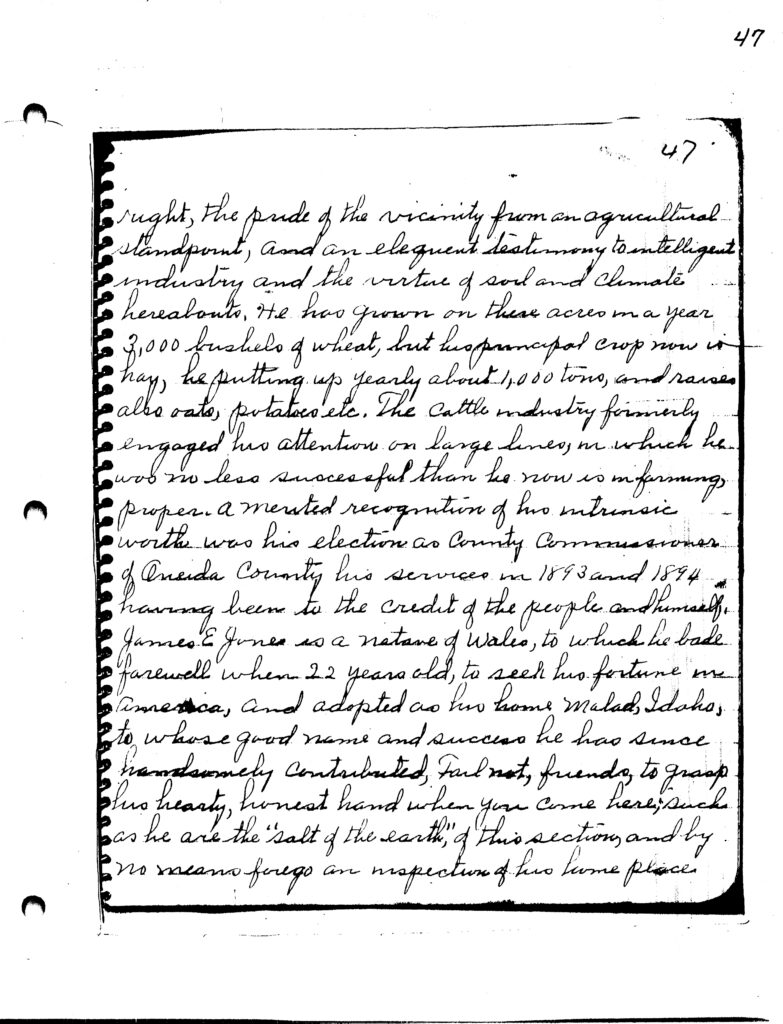 47
47
right, the pride of the vicinity from an agricultural
standpoint, and an elequent testimony to intelligent
industry and the virtue of soil and climate
hereabouts. He has grown on these acres in a year
3,000 bushels of wheat, but his principal crop now is
hay, he putting up yearly about 1,000 tons, and raises
also oats, potatoes etc. The cattle industry formerly
engaged his attention on large lines, in which he
was no less successful than he now is in farming,
proper. A merited recognition of his intrinsic
worth was his election as County Commissioner
of Oneida County his services in 1893 and 1894
having been to the credit of the people and himself.
James E Jones is a native of Wales, to which he bade
farewell when 22 years old, to seek his fortune in
America, and adopted as his home Malad, Idaho,
to whose good name and success he has since
handsomely contributed, Fail not, friends, to grasp
his hearty, honest hand when you come here; such
as he are the "salt of the earth," of this section, and by
no means forego an inspection of his home place